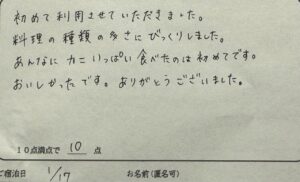 初めて利用させていただきました。
料理の種類の多さにびっくりしました。
あんなにカニいっぱい食べたのは初めてです。
おいしかったです。ありがとうございました。
10点満点で 10 点
ご宿泊日 1/17 お名前(匿名可)